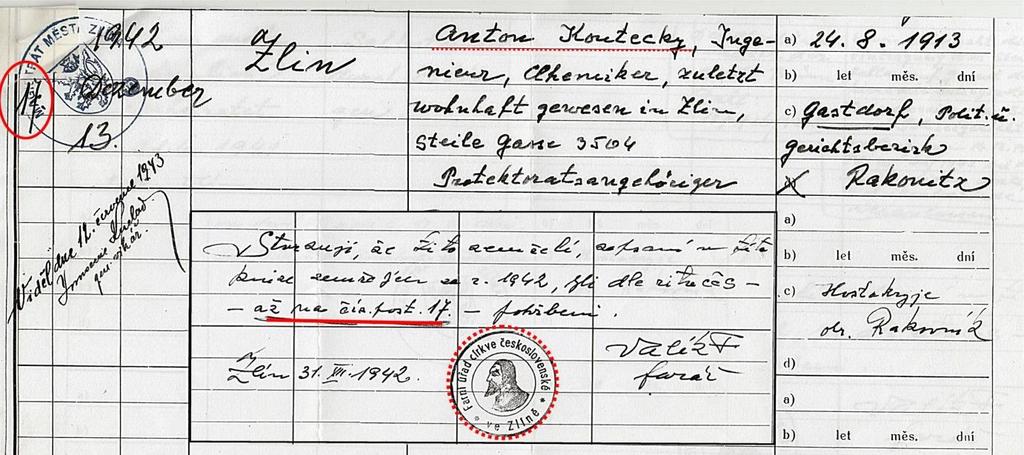 1942
Dezember
13.
17
Zlin
Anton Koutecky, Inge-
nieur, Chemiker, zuletzt
wohnhaft gewesen in Zlin,
Steile Gasse 3504
Protektoratsangehöriger
a) 24. 8. 1913
b) let měs. dní
c) Gastdorf, Polit. u.
Gerichtsbezirk
Rakonitz
Viděl dne 12. července 1943
gen. vikář.
že tito zemřelí, zapsaní v této
knize zemřelých za r. 1942, byli dle ritu čes-
– až na čís. post. 17. – pohřbeni.
Zlín 31. XII. 1942.
farář
Farní úřad církve československé
* ve Zlíně *
a)
b) let měs. dní
c) Hostokryje
okr. Rakovník
d)
a)
b) let měs. dní